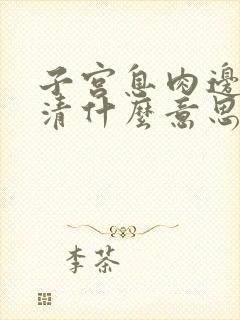 子宮息肉邊
清什麼意思
李茶